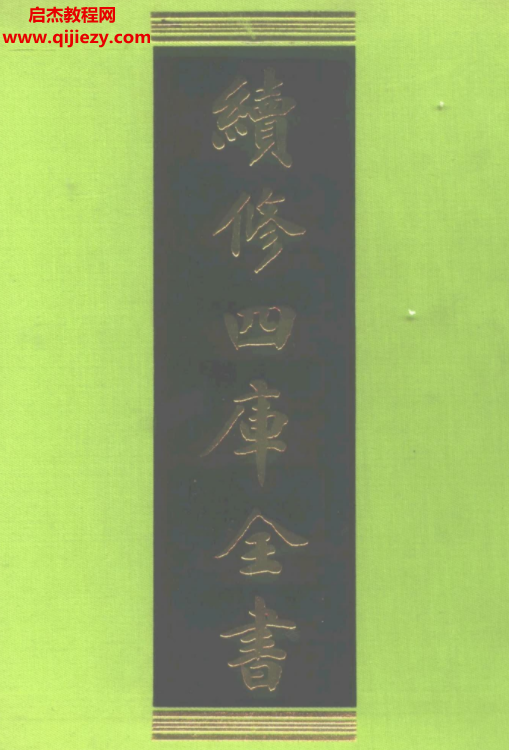 启杰教程网
www.qijiezy.com
續修四庫全書